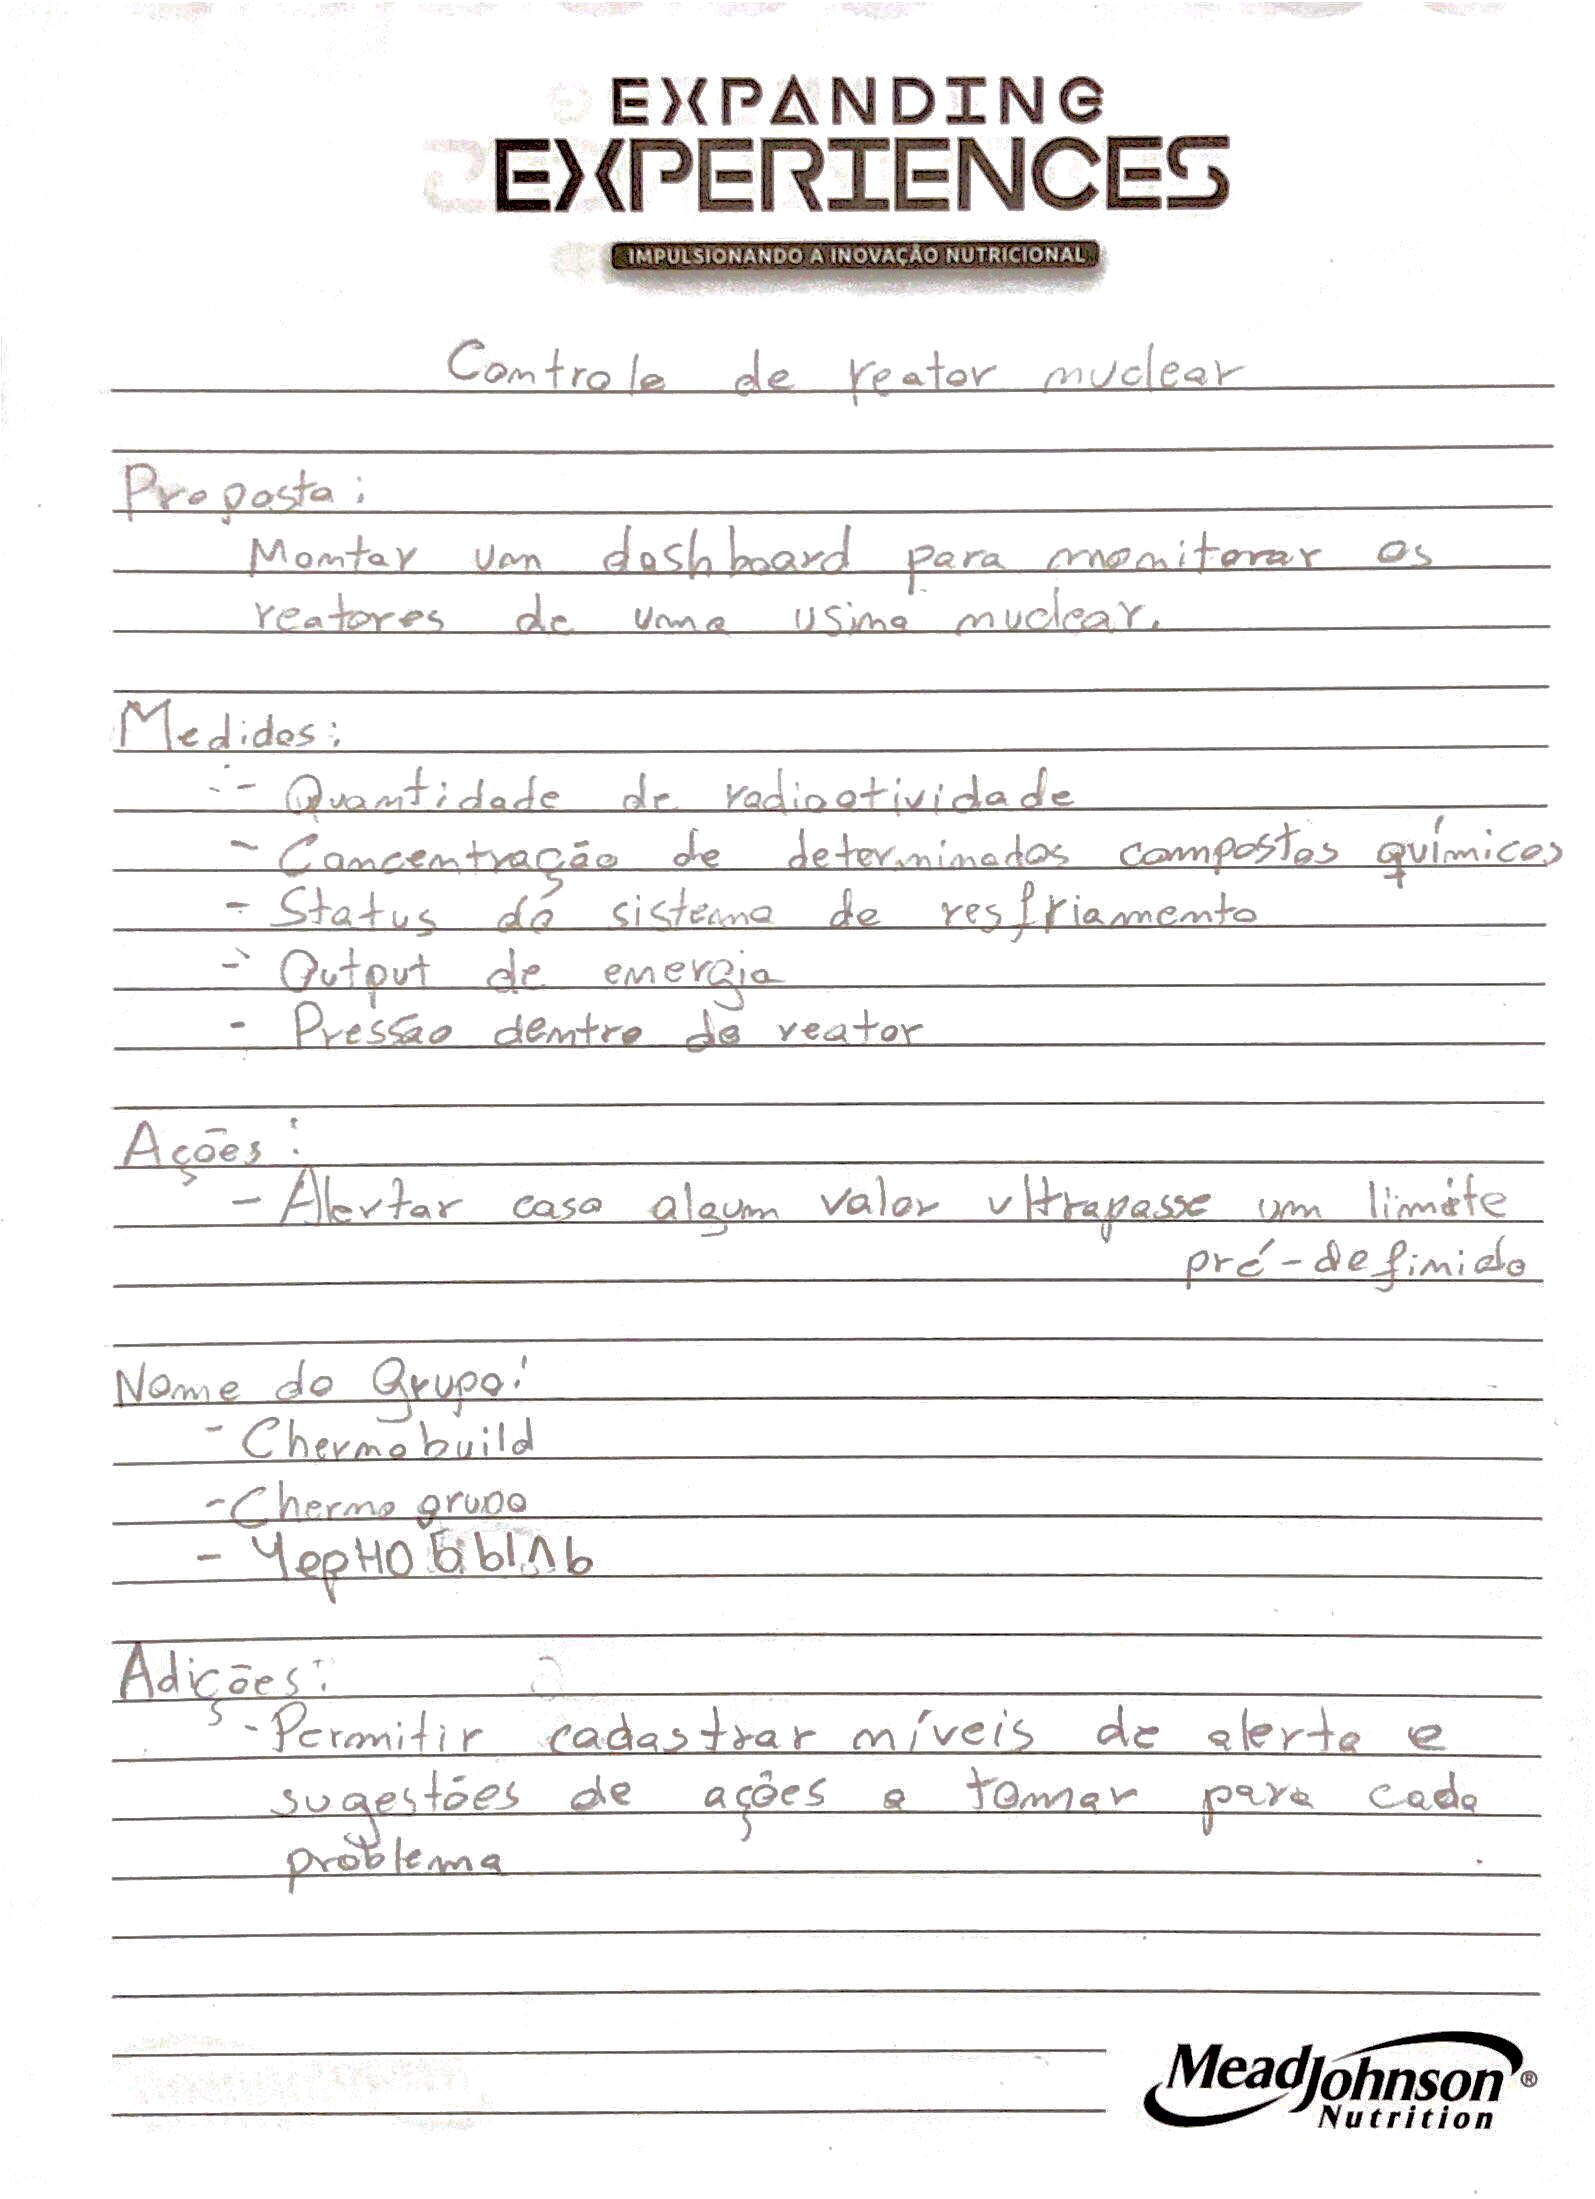 EXPANDING
EXPERIENCES
IMPULSIONANDO A INOVAÇÃO NUTRICIONAL
Controle de reator nuclear
Proposta:
Montar um dashboard para monitorar os
reatores de uma usina nuclear.
Medidas:
- Quantidade de radioatividade
- Concentração de determinados compostos químicos
- Status do sistema de resfriamento
- Output de energia
- Pressão dentro do reator
Ações:
- Alertar caso algum valor ultrapasse um limite
pré-definido
Nome do Grupo:
- Chernobuild
- Cherno grupo
- Чернобыль
Adições:
- Permitir cadastrar níveis de alerta e
sugestões de ações a tomar para cada
problema
MeadJohnson®
Nutrition